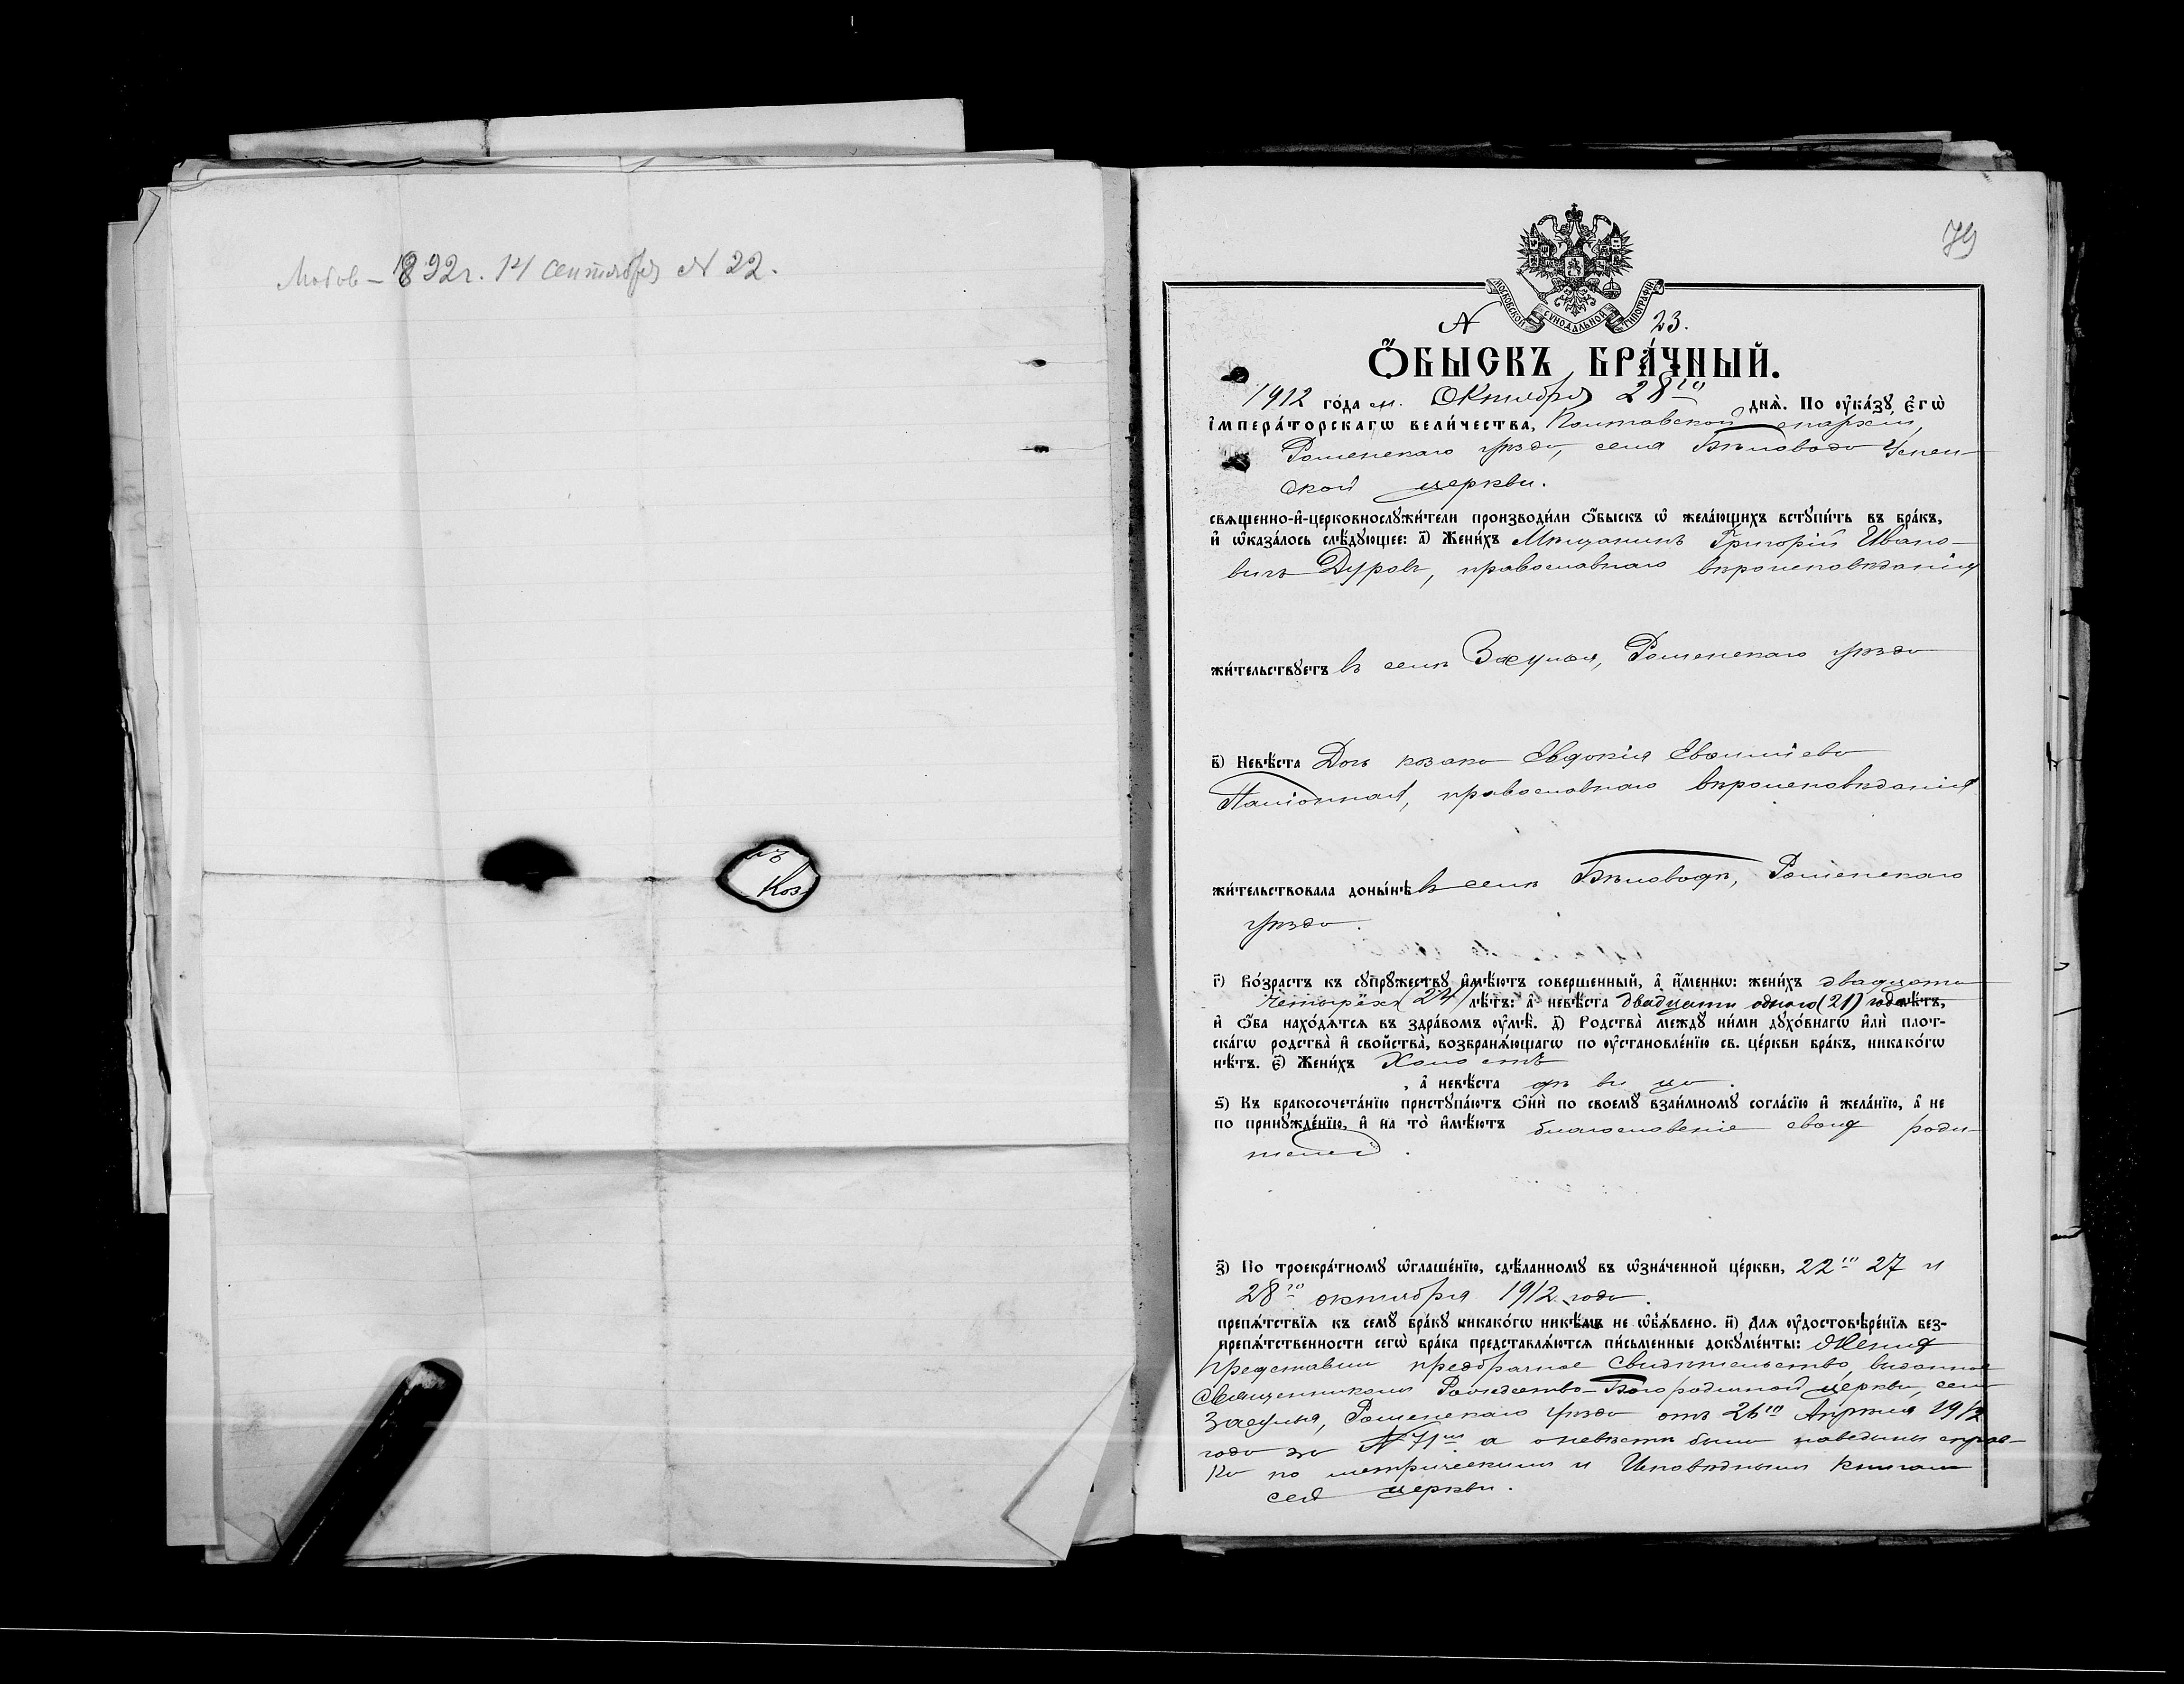 Любов – 1892 г. 14 сентября № 22.
въ
Коз
79
МОСКОВСКОЙ СУНОДАЛЬНОЙ ТИПОГРАФІИ
№ 23.
Ѻ҆БЫСКЪ БРА́ЧНЫЙ.
1912 го́да м. Октября 28го днѧ̀. По ᲂу҆ка́зꙋ є҆гѡ̀
і҆мпера́торскагѡ вели́чества, Полтавской епархіи,
Роменскаго уѣзда, села Бѣловода Успен-
ской церкви.
свѧщенно-и҆-церковнослꙋжи́тели производи́ли ѻ҆́быскъ ѡ҆ жела́ющихъ встꙋпи́ть въ бра́къ,
и҆ ѡ҆каза́лось слѣ́дꙋющее: а҃) Жени́хъ Мѣщанинъ Григорій Ивано-
вичъ Дуровъ, православнаго вѣроисповѣданія
жи́тельствꙋетъ въ селѣ Засулья, Роменскаго уѣзда
в҃) Невѣ́ста Дочь козака Евдокія Евфиміева
православнаго вѣроисповѣданія
жи́тельствовала доны́нѣ въ селѣ Бѣловодѣ, Роменскаго
уѣзда.
г҃) Во́зрастъ къ сꙋпрꙋ́жествꙋ и҆мѣ́ютъ соверше́нный, а҆ и҆́менно: жени́хъ двадцати
четырёхъ (24) лѣ́тъ: а҆ невѣ́ста двадцати одного (21) года лѣ́тъ,
и҆ ѻ҆́ба нахо́дѧтсѧ въ здра́вомъ ᲂу҆мѣ̀. д҃) Родства̀ междꙋ̀ ни́ми дꙋхо́внагѡ и҆лѝ плот-
ска́гѡ родства̀ и҆ сво́йства, возбранѧ́ющагѡ по ᲂу҆становле́нїю св. це́ркви бра́къ, никако́гѡ
нѣ́тъ. є҃) Жени́хъ Холостъ
, а҆ невѣ́ста дѣвица.
ѕ҃) Къ бракосочета́нїю пристꙋпа́ютъ ѻ҆нѝ по своемꙋ̀ взаи́мномꙋ согла́сїю и҆ жела́нїю, а҆ не
по принꙋжде́нїю, и҆ на то̀ и҆мѣ́ютъ благословеніе своихъ роди-
телей.
з҃) По троекра́тномꙋ ѡ҆глаше́нїю, сдѣ́ланномꙋ въ ѡ҆зна́ченной це́ркви, 22го 27 и
28го октября 1912 года.
препѧ́тствїѧ къ семꙋ̀ бра́кꙋ никако́гѡ никѣ́мъ не ѡ҆б̾ѧ́влено. и҃) Длѧ ᲂу҆достовѣре́нїѧ без-
препѧ́тственности сегѡ̀ бра́ка представлѧ́ютсѧ пи́сьменные докꙋме́нты: Женихъ
представилъ предбрачное свидѣтельство, выданное
священникомъ Рождество-Богородичной церкви, села
Засулья, Роменскаго уѣзда отъ 26го Апрѣля 1912
года за № 71мъ а о невѣстѣ были наведены справ-
ки по метрическимъ и Исповѣднымъ книгамъ
сей церкви.